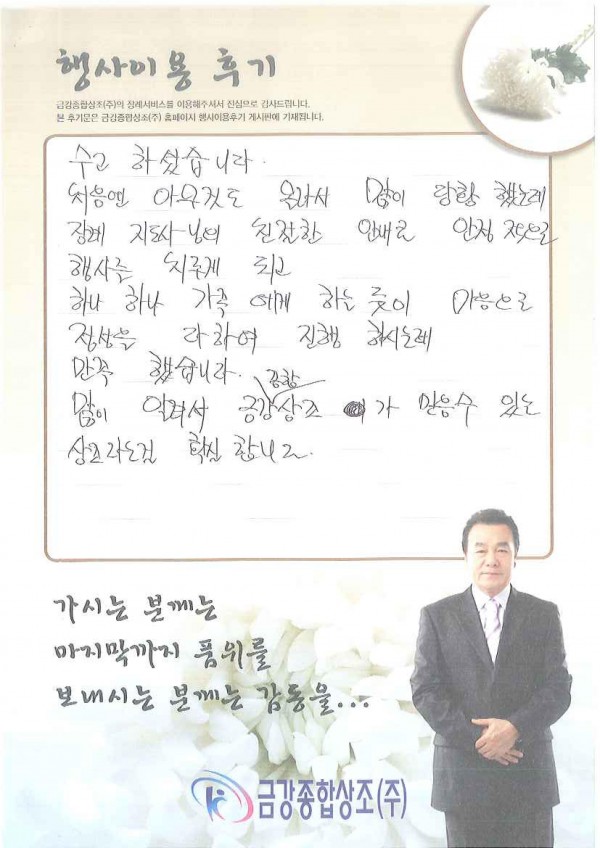 행사이용 후기
금강종합상조(주)의 장례서비스를 이용해주셔서 진심으로 감사드립니다.
본 후기문은 금강종합상조(주) 홈페이지 행사이용후기 게시판에 기재됩니다.
수고 하셨습니다.
처음엔 아무것도 몰라서 많이 당황 했는데
장례 지도사님의 친절한 안내로 안정적으로
행사를 치루게 되고
하나 하나 가족 에게 하는 듯이 마음으로
정성을 다하여 진행 하시는데
만족 했습니다.
종합
많이 알려서 금강상조 가 믿을수 있는
상조라는걸 확신 합니다.
가시는 분께는
마지막까지 품위를
보내시는 분께는 감동을...
금강종합상조(주)